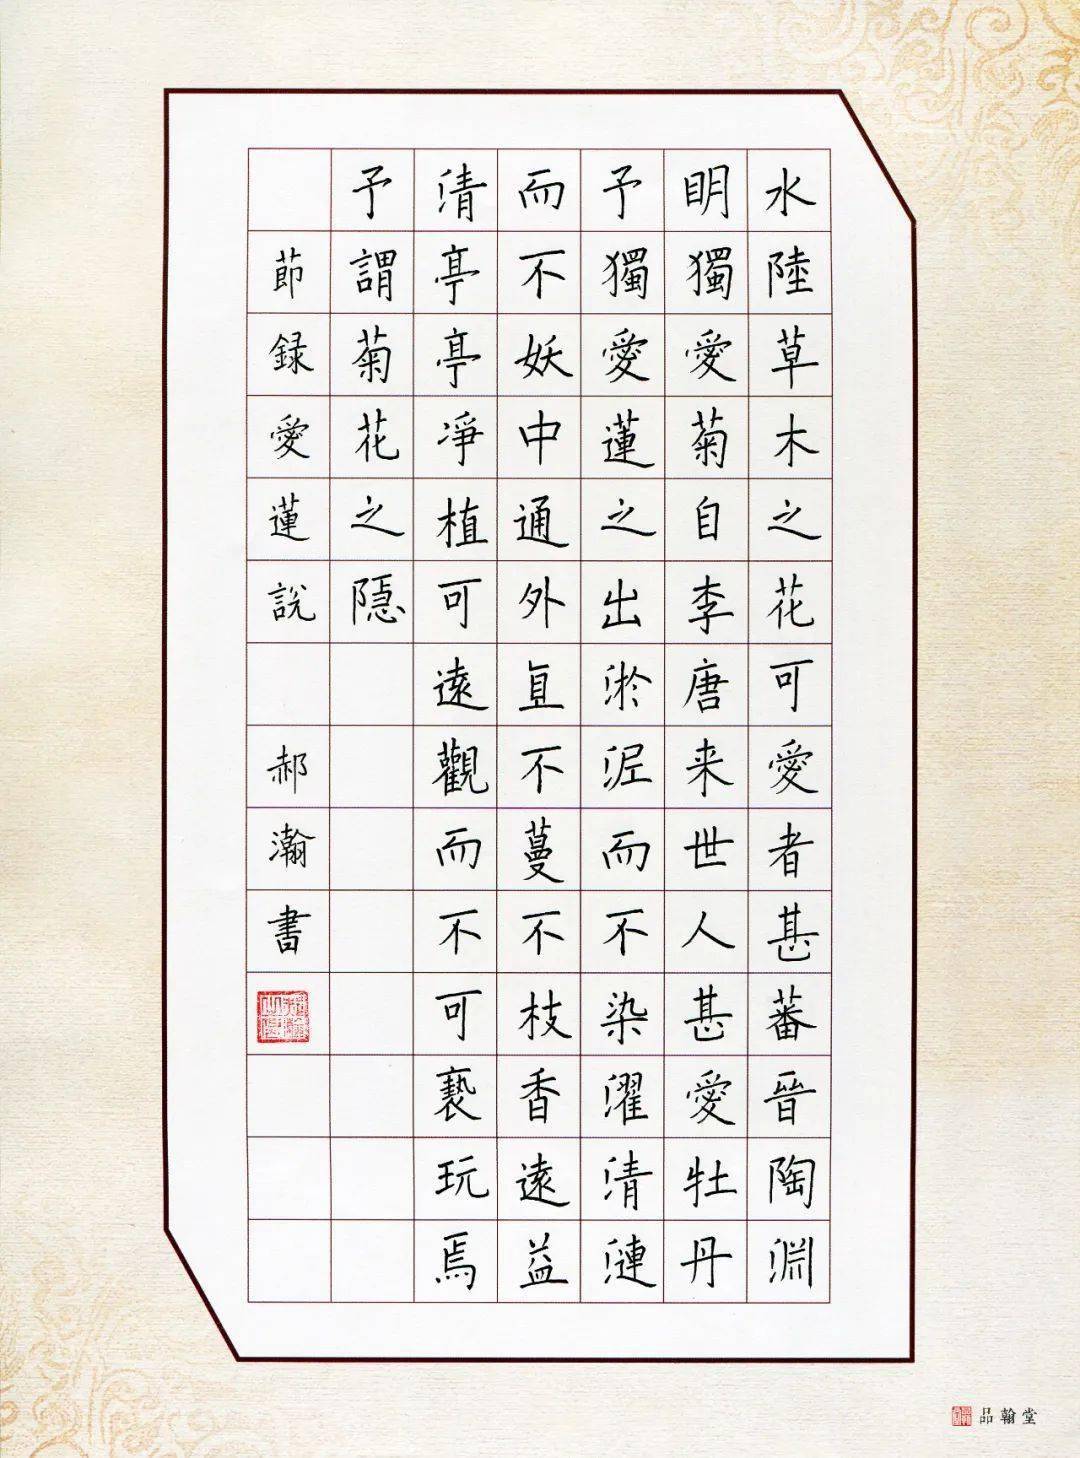 水陸草木之花可愛者甚蕃晉陶淵
明獨愛菊自李唐来世人甚愛牡丹
予獨愛蓮之出淤泥而不染濯清漣
而不妖中通外直不蔓不枝香遠益
清亭亭净植可遠觀而不可亵玩焉
予謂菊花之隱
節録愛蓮説
郝瀚書
品翰堂